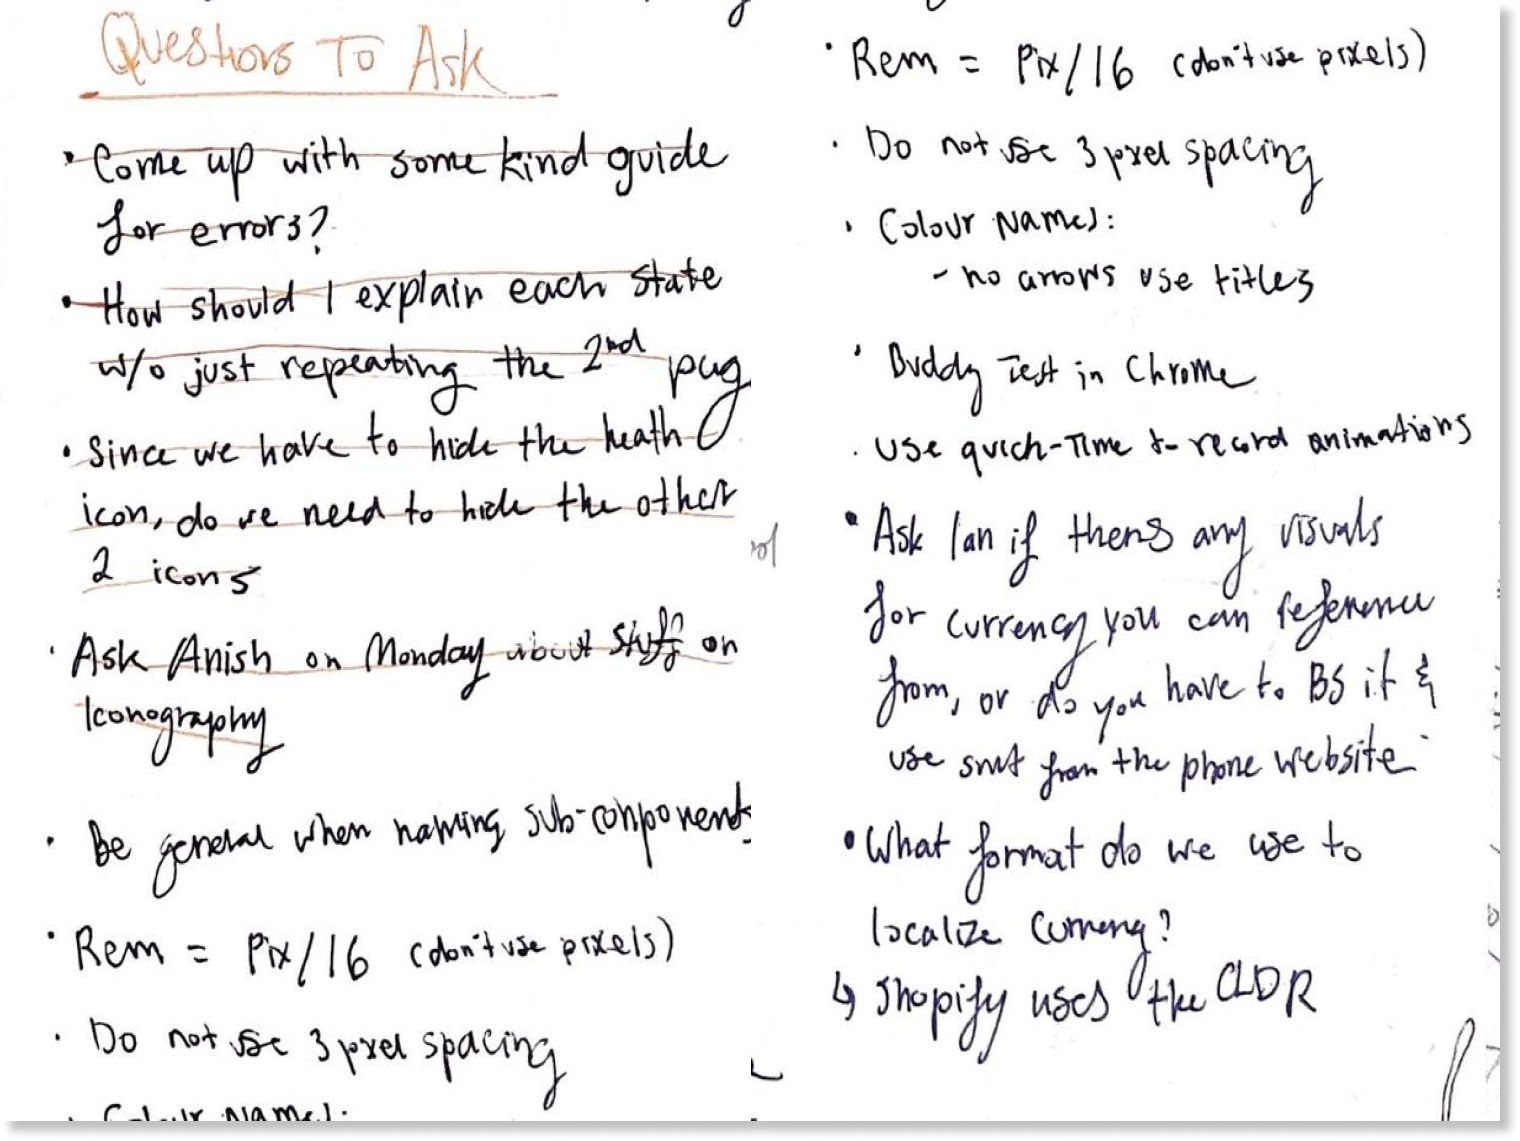 Questions To Ask
• Come up with some kind guide
for errors?
• How should I explain each state
w/o just repeating the 2nd pug
• Since we have to hide the heath
icon, do we need to hide the other
2 icons
• Ask Anish on Monday about stuff on
Iconography
• Be general when naming sub-components
• Rem = Pix/16 (don't use pixels)
• Do not use 3 pixel spacing
• Colour Names:
• Rem = Pix/16 (don't use pixels)
• Do not use 3 pixel spacing
• Colour Names:
- no arrows use titles
• Buddy Test in Chrome
• Use quick-Time to record animations
• Ask Ian if theres any visuals
for currency you can reference
from, or do you have to BS it &
use smt from the phone website
• What format do we use to
localize Curreny?
↳ Shopify uses the CLDR